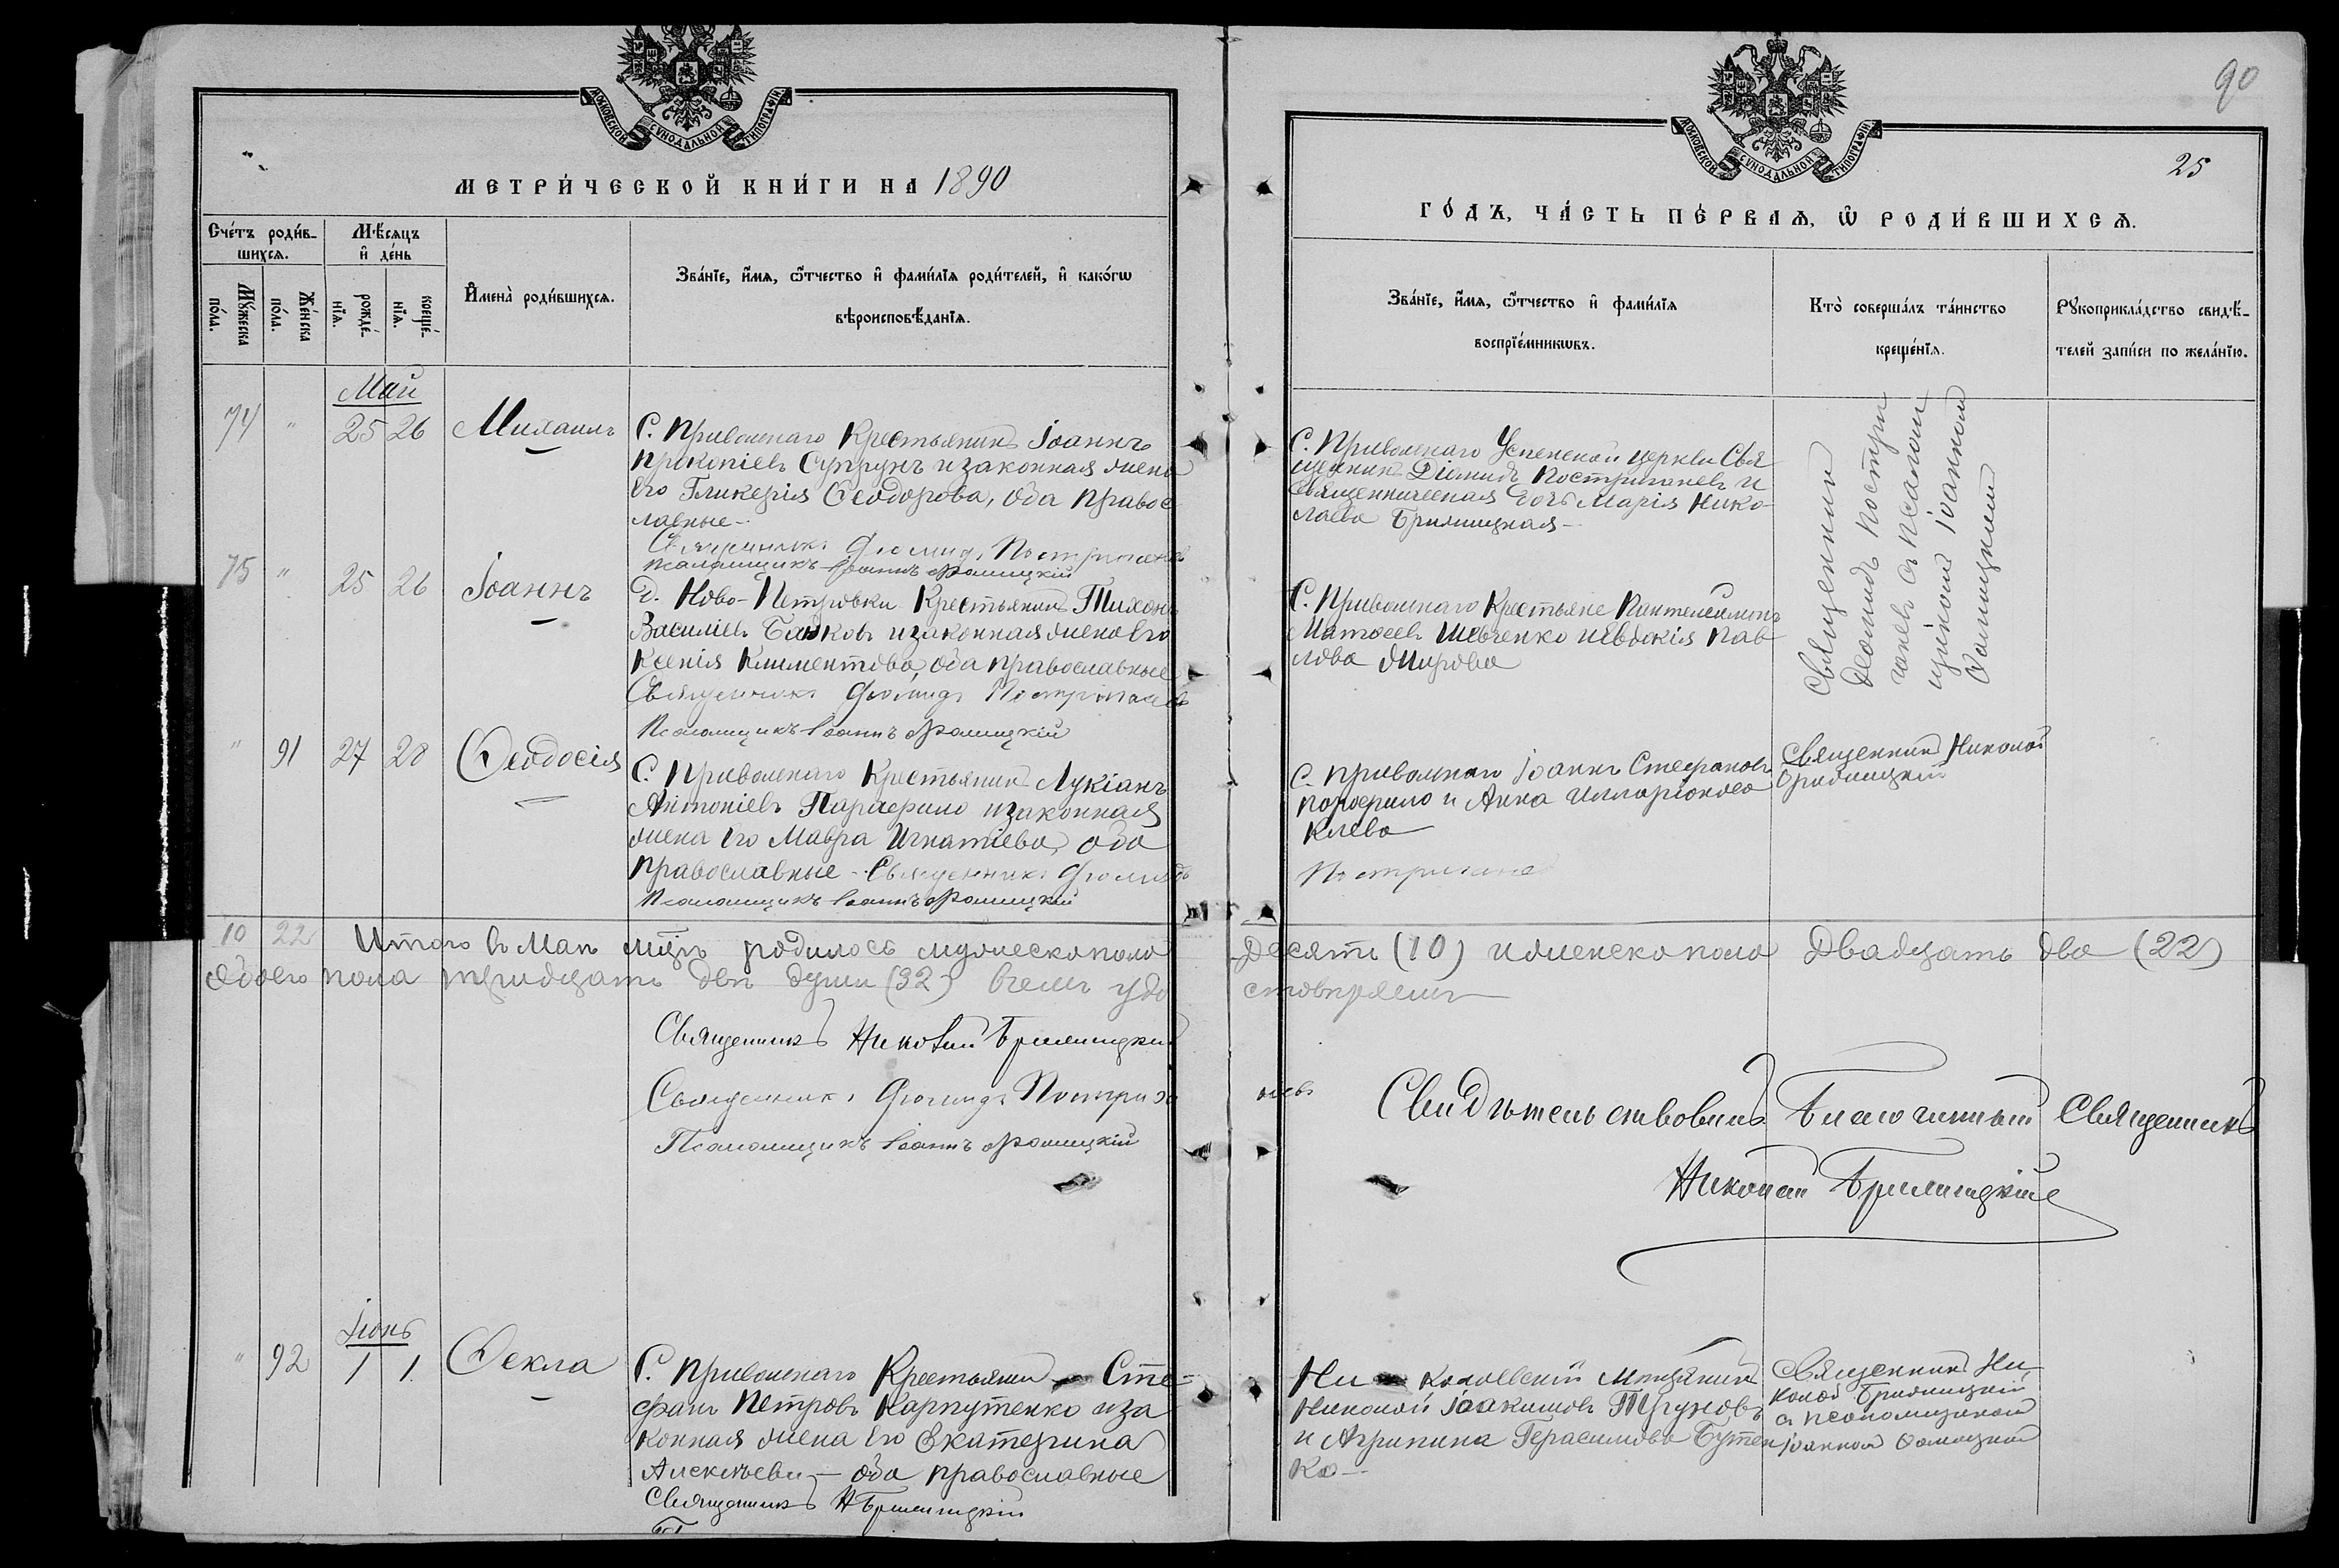 МОСКОВСКОЙ СУНОДАЛЬНОЙ ТИПОГРАФІИ
МЕТРИ́ЧЕСКОЙ КНИ́ГИ НА 1890
Сче́тъ роди́в-
шихсѧ.
Мꙋ́жеска
по́ла.
Же́нска
по́ла.
Мѣ́сѧцъ
и҆ де́нь
рожде́-
нїѧ.
креще́-
нїѧ.
И҆мена̀ роди́вшихсѧ.
Зва́нїе, и҆́мѧ, ѻ҆́тчество и҆ фами́лїѧ роди́телей, и҆ како́гѡ
вѣроисповѣ́данїѧ.
Май
74 " 25 26 Михаилъ
С. Привольнаго Крестьянинъ Іоаннъ
Прокопіевъ Супрунъ и законная жена
его Гликерія Ѳеодорова, оба правос
лавные -
Священникъ Діомидъ Постригановъ
Псаломщикъ Іоаннъ Ѳомицкій
75 " 25 26 Іоаннъ
д. Ново-Петровки Крестьянинъ Тихонъ
Василіевъ Байковъ и законная жена его
Ксенія Климентова, оба православные
Священникъ Діомидъ Постригановъ
Псаломщикъ Іоаннъ Ѳомицкій
" 91 27 28 Ѳеодосія
С. Привольнаго Крестьянинъ Лукіанъ
Антоніевъ Парферило и законная
жена его Мавра Игнатіева, оба
православные - Священникъ Діомидъ
Псаломщикъ Іоаннъ Ѳомицкій
10 22 Итого въ Маѣ мцѣ родилось мужеска пола
обоего пола тридцать двѣ души (32) въ чемъ удо
Священникъ Николай Брилицкій
Священникъ Діомидъ Пострига
Псаломщикъ Іоаннъ Ѳомицкій
Іюнь
" 92 1 1. Ѳекла
С. Привольнаго Крестьянинъ Сте-
фанъ Петровъ Карпутенко и за
конная жена его Екатерина
Алексѣева - оба православные
Священникъ Н Брилицкій
90
25
МОСКОВСКОЙ СУНОДАЛЬНОЙ ТИПОГРАФІИ
ГО́ДЪ, ЧА́СТЬ ПЕ́РВАѦ, Ѡ҆ РОДИ́ВШИХСѦ.
Зва́нїе, и҆́мѧ, ѻ҆́тчество и҆ фами́лїѧ
воспрїе́мникѡвъ.
Кто̀ соверша́лъ та́инство
креще́нїѧ.
Рꙋкоприкла́дство свидѣ́-
телей за́писи по жела́нїю.
С. Привольнаго Успенской церкви Свя
щенникъ Діомидъ Постригановъ и
Священническая дочь Марія Нико-
лаева Брилицкая -
Священникъ
Діомидъ Постри
гановъ съ псалом
щикомъ Іоанномъ
Ѳомицкимъ
С. Привольнаго Крестьяне Пантелеимонъ
Матѳеевъ Шевченко и Евдокія Пав-
лова
С. Привольнаго Іоаннъ Стефановъ
Парферило и Анна Илларіонова
Клева
Священникъ Николай
Брилицкій
Постригано
Десять (10) и женска пола Двадцать два (22)
стовѣряемъ
новъ
Свидѣтельствовалъ Благочинный Священникъ
Николай Брилицкій
Ни колаевскій Мѣщанинъ
Николай Іоакимовъ Труновъ
и Агрипина Герасимова Бутен
ко -
Священникъ Ни-
колай Брилицкій
съ псаломщикомъ
Іоанномъ Ѳомицкимъ